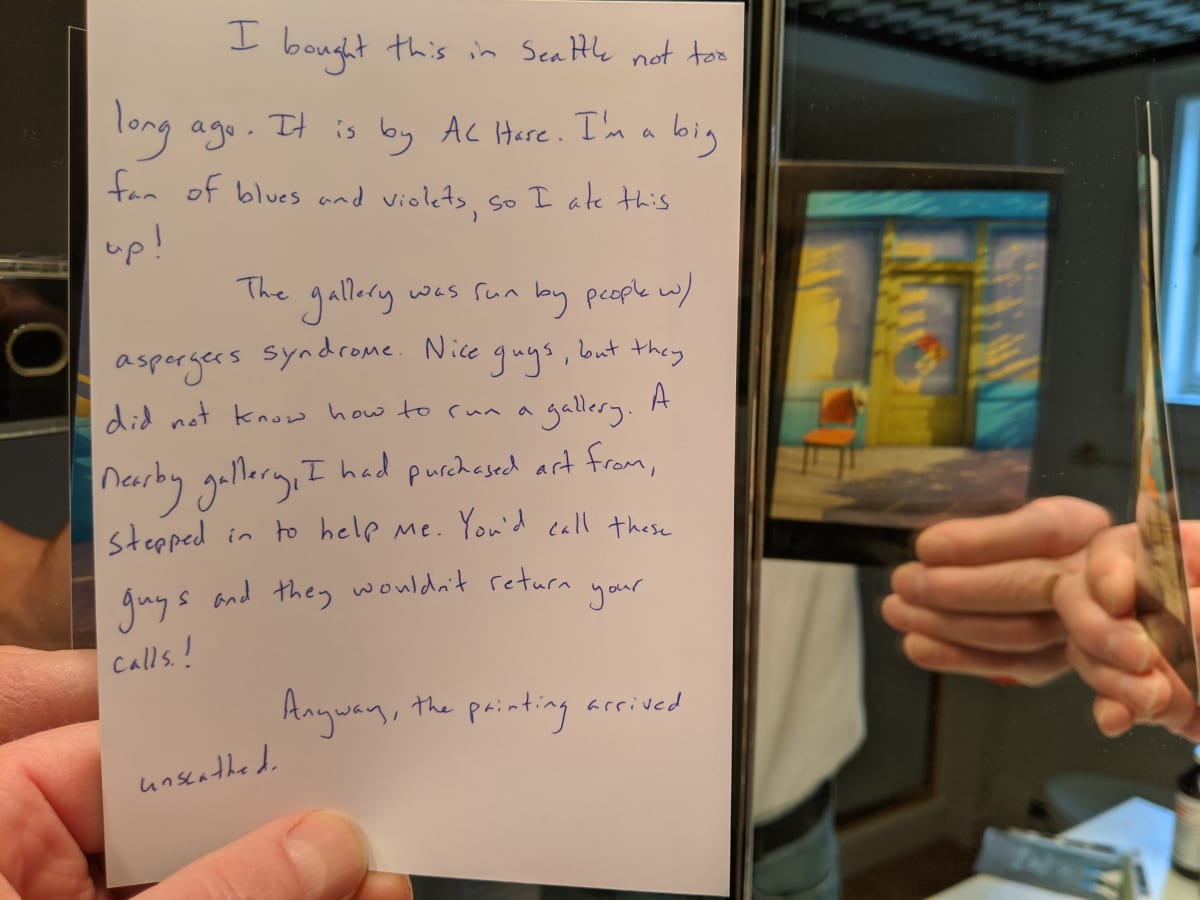 I bought this in Seattle not too
long ago. It is by AC Hare. I'm a big
fan of blues and violets, so I ate this
up!
The gallery was run by people w/
aspergers syndrome. Nice guys, but they
did not know how to run a gallery. A
nearby gallery, I had purchased art from,
stepped in to help me. You'd call these
guys and they wouldn't return your
calls.!
Anyway, the painting arrived
unscathed.